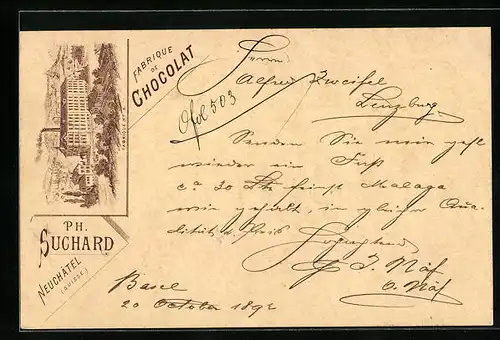 FABRIQUE
DE
CHOCOLAT
PH.
SUCHARD
NEUCHATEL
(SUISSE)
Herrn
Alfred Zweifel
Lenzburg.
Senden Sie mir gefl
wieder ein Fass
ca 30 Ltr feinst Malaga
wie gehabt, in gleicher Qua-
lität u. Preis
Hochachtend
J. Näf
Basel
20 October 1892